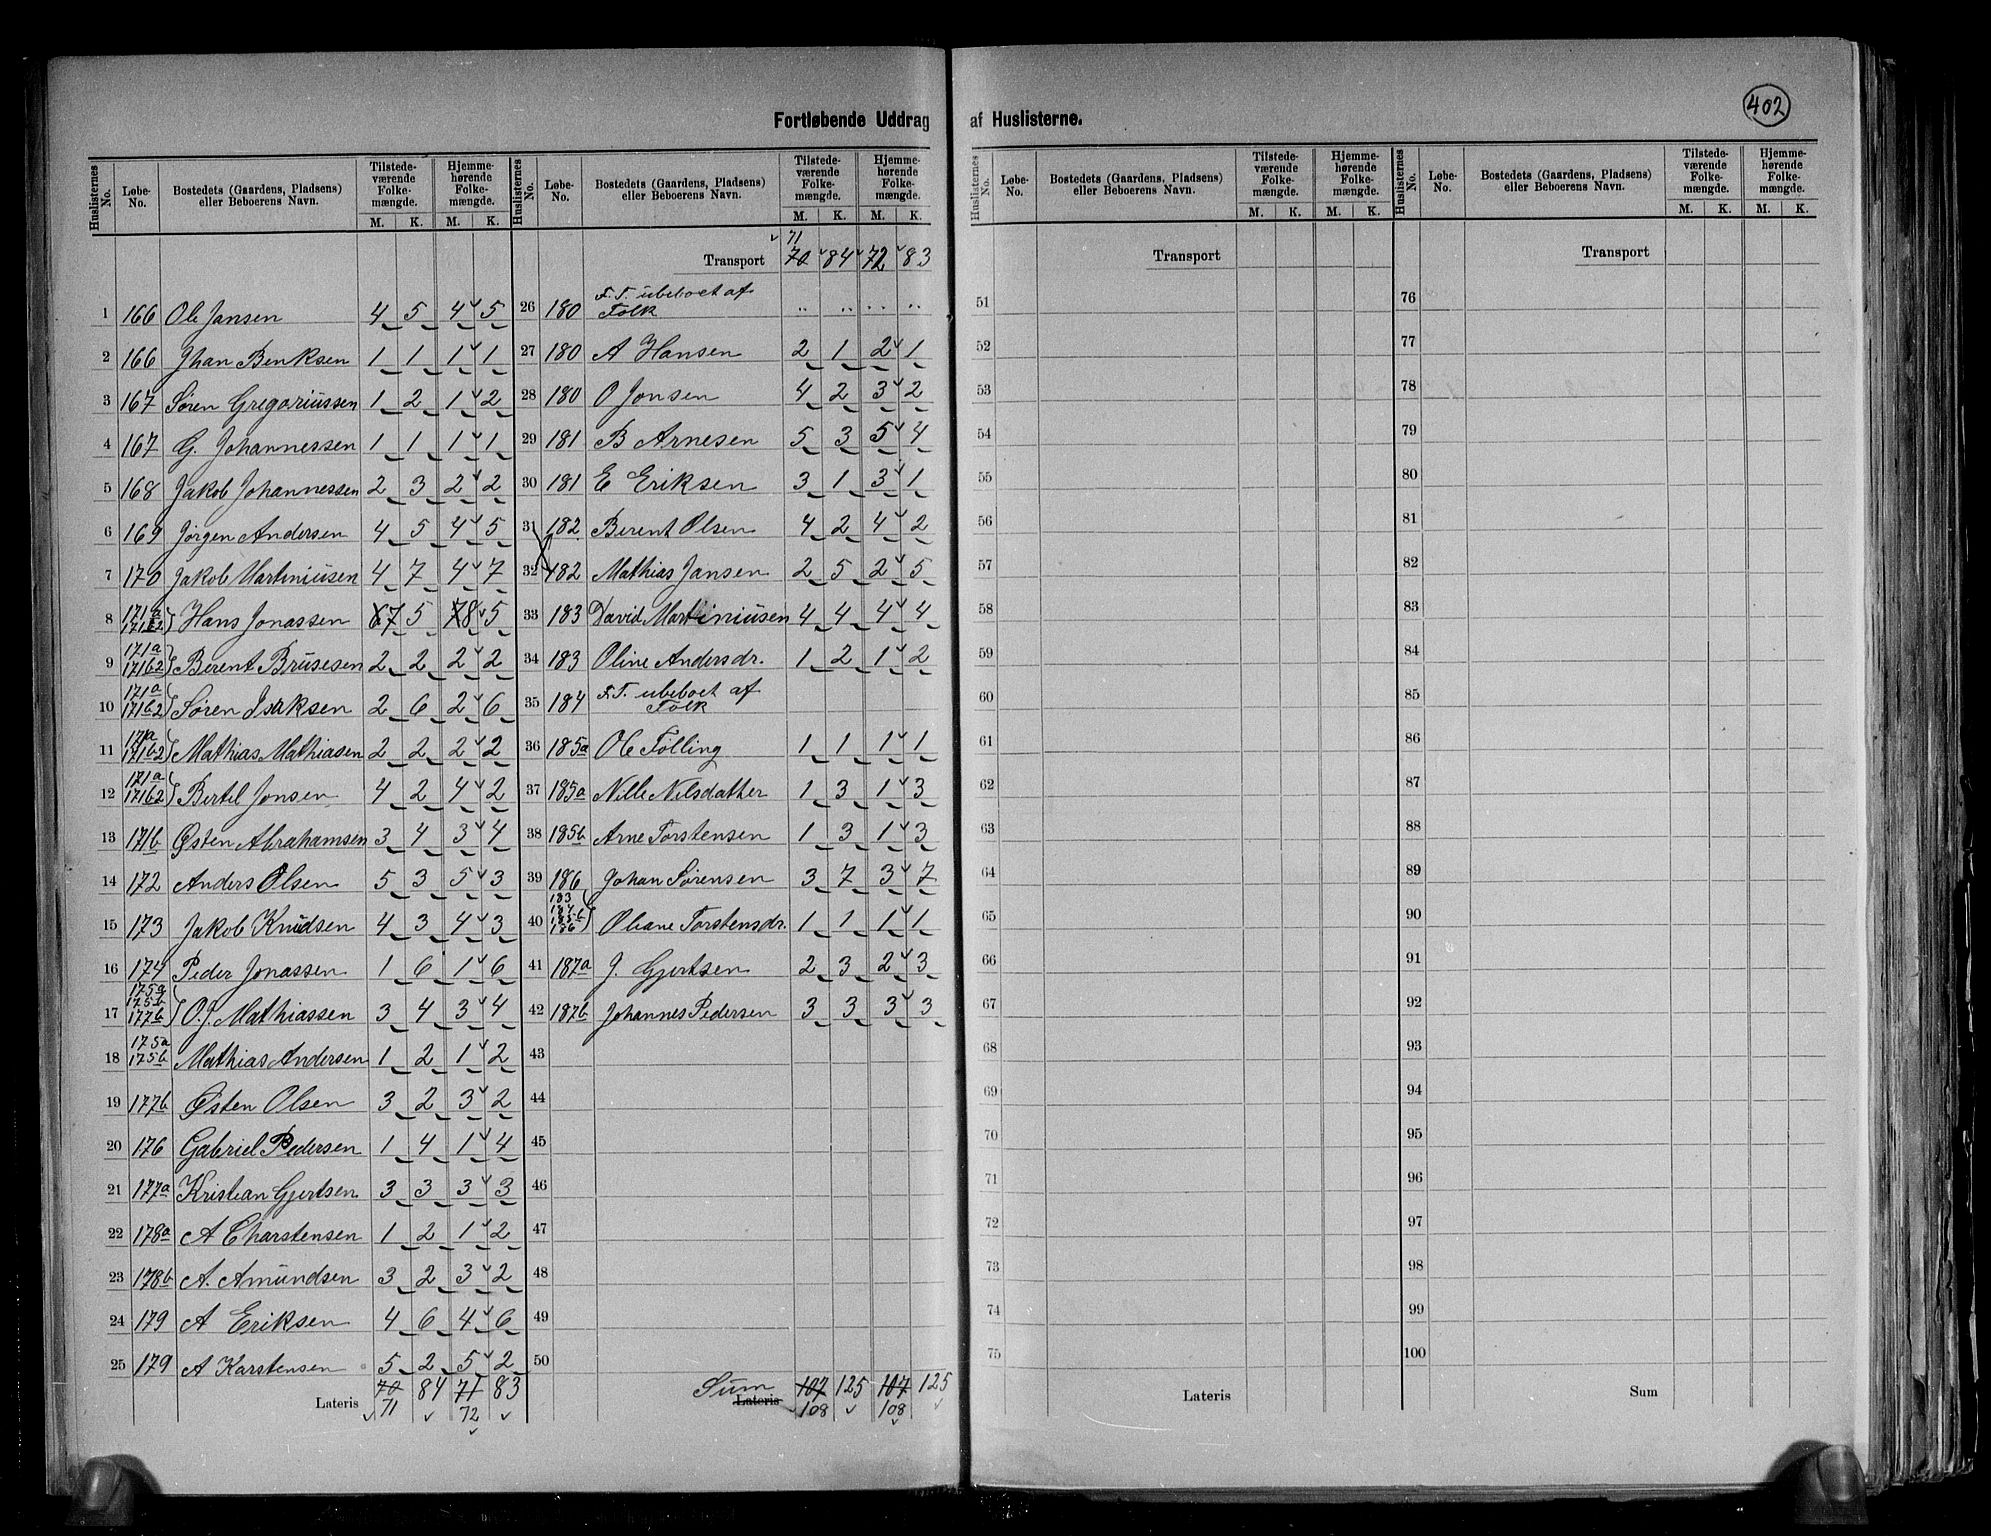 402
Fortløbende Uddrag af Huslisterne.
Huslisternes No. | Løbe-No. | Bostedets (Gaardens, Pladsens) eller Beboerens Navn. | Tilstedeværende Folkemængde. M. K. | Hjemmehørende Folkemængde. M. K.
1 166 Ole Jansen 4 5 4 5
2 166 Jhan Benksen 1 1 1 1
3 167 Søren Gregoriussen 1 2 1 2
4 167 G. Johannessen 1 1 1 1
5 168 Jakob Johannessen 2 3 2 2
6 169 Jørgen Andersen 4 5 4 5
7 170 Jakob Martiniusen 4 7 4 7
8 171a 171b2 Hans Jonassen 6 7 5 7 8 5
9 171a 171b2 Berent Brusesen 2 2 2 2
10 171a 171b2 Søren Isaksen 2 6 2 6
11 171a 171b2 Mathias Mathiasen 2 2 2 2
12 171a 171b2 Bertel Jonsen 4 2 4 2
13 171b Østen Abrahamsen 3 4 3 4
14 172 Anders Olsen 5 3 5 3
15 173 Jakob Knudsen 4 3 4 3
16 174 Peder Jonassen 1 6 1 6
17 175a 175b 177b O. J. Mathiassen 3 4 3 4
18 175a 175b Mathias Andersen 1 2 1 2
19 177b Østen Olsen 3 2 3 2
20 176 Gabriel Pedersen 1 4 1 4
21 177a Kristian Gjertsen 3 3 3 3
22 178a A Charstensen 1 2 1 2
23 178b A. Amundsen 3 2 3 2
24 179 A Eriksen 4 6 4 6
25 179 A Karstensen 5 2 5 2
Lateris 70 84 71 83
71 72
Huslisternes No. | Løbe-No. | Bostedets (Gaardens, Pladsens) eller Beboerens Navn. | Tilstedeværende Folkemængde. M. K. | Hjemmehørende Folkemængde. M. K.
71
Transport 70 84 72 83
26 180 F. T. ubeboet af Folk
27 180 A Hansen 2 1 2 1
28 180 O Jonsen 4 2 3 2
29 181 B Arnesen 5 3 5 4
30 181 E Eriksen 3 1 3 1
31 182 Berent Olsen 4 2 4 2
32 182 Mathias Jansen 2 5 2 5
33 183 David Martiniusen 4 4 4 4
34 183 Oline Andersdr. 1 2 1 2
35 184 F. T. ubeboet af Folk
36 185a Ole Følling 1 1 1 1
37 185a Nille Nilsdatter 1 3 1 3
38 185b Arne Torstensen 1 3 1 3
39 186 Johan Sørensen 3 7 3 7
40 183 184 185b 186 Oliane Torstensdr. 1 1 1 1
41 187a J. Gjertsen 2 3 2 3
42 187b Johannes Pedersen 3 3 3 3
43
44
45
46
47
48
49
50
Sum Lateris 107 125 107 125
108 108
Huslisternes No. | Løbe-No. | Bostedets (Gaardens, Pladsens) eller Beboerens Navn. | Tilstedeværende Folkemængde. M. K. | Hjemmehørende Folkemængde. M. K.
Transport
51
52
53
54
55
56
57
58
59
60
61
62
63
64
65
66
67
68
69
70
71
72
73
74
75
Lateris
Huslisternes No. | Løbe-No. | Bostedets (Gaardens, Pladsens) eller Beboerens Navn. | Tilstedeværende Folkemængde. M. K. | Hjemmehørende Folkemængde. M. K.
Transport
76
77
78
79
80
81
82
83
84
85
86
87
88
89
90
91
92
93
94
95
96
97
98
99
100
Sum